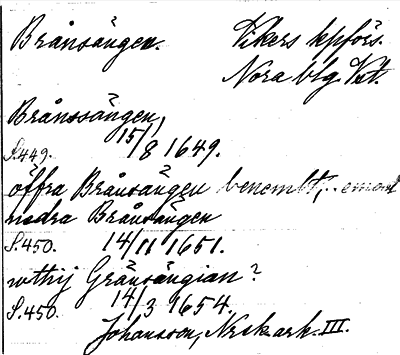 Brånsängen. Vikers kpförs.
Nora blg. Vstm.
Brånssängen,
S.449. 15/8 1649.
öffra Brånsängen benembt, emoot
nedra Brånsängen
S.450. 14/11 1651.
wthij Gränsängian?
S.450. 14/3 1654.
Johansson, Norsk.ark. III.